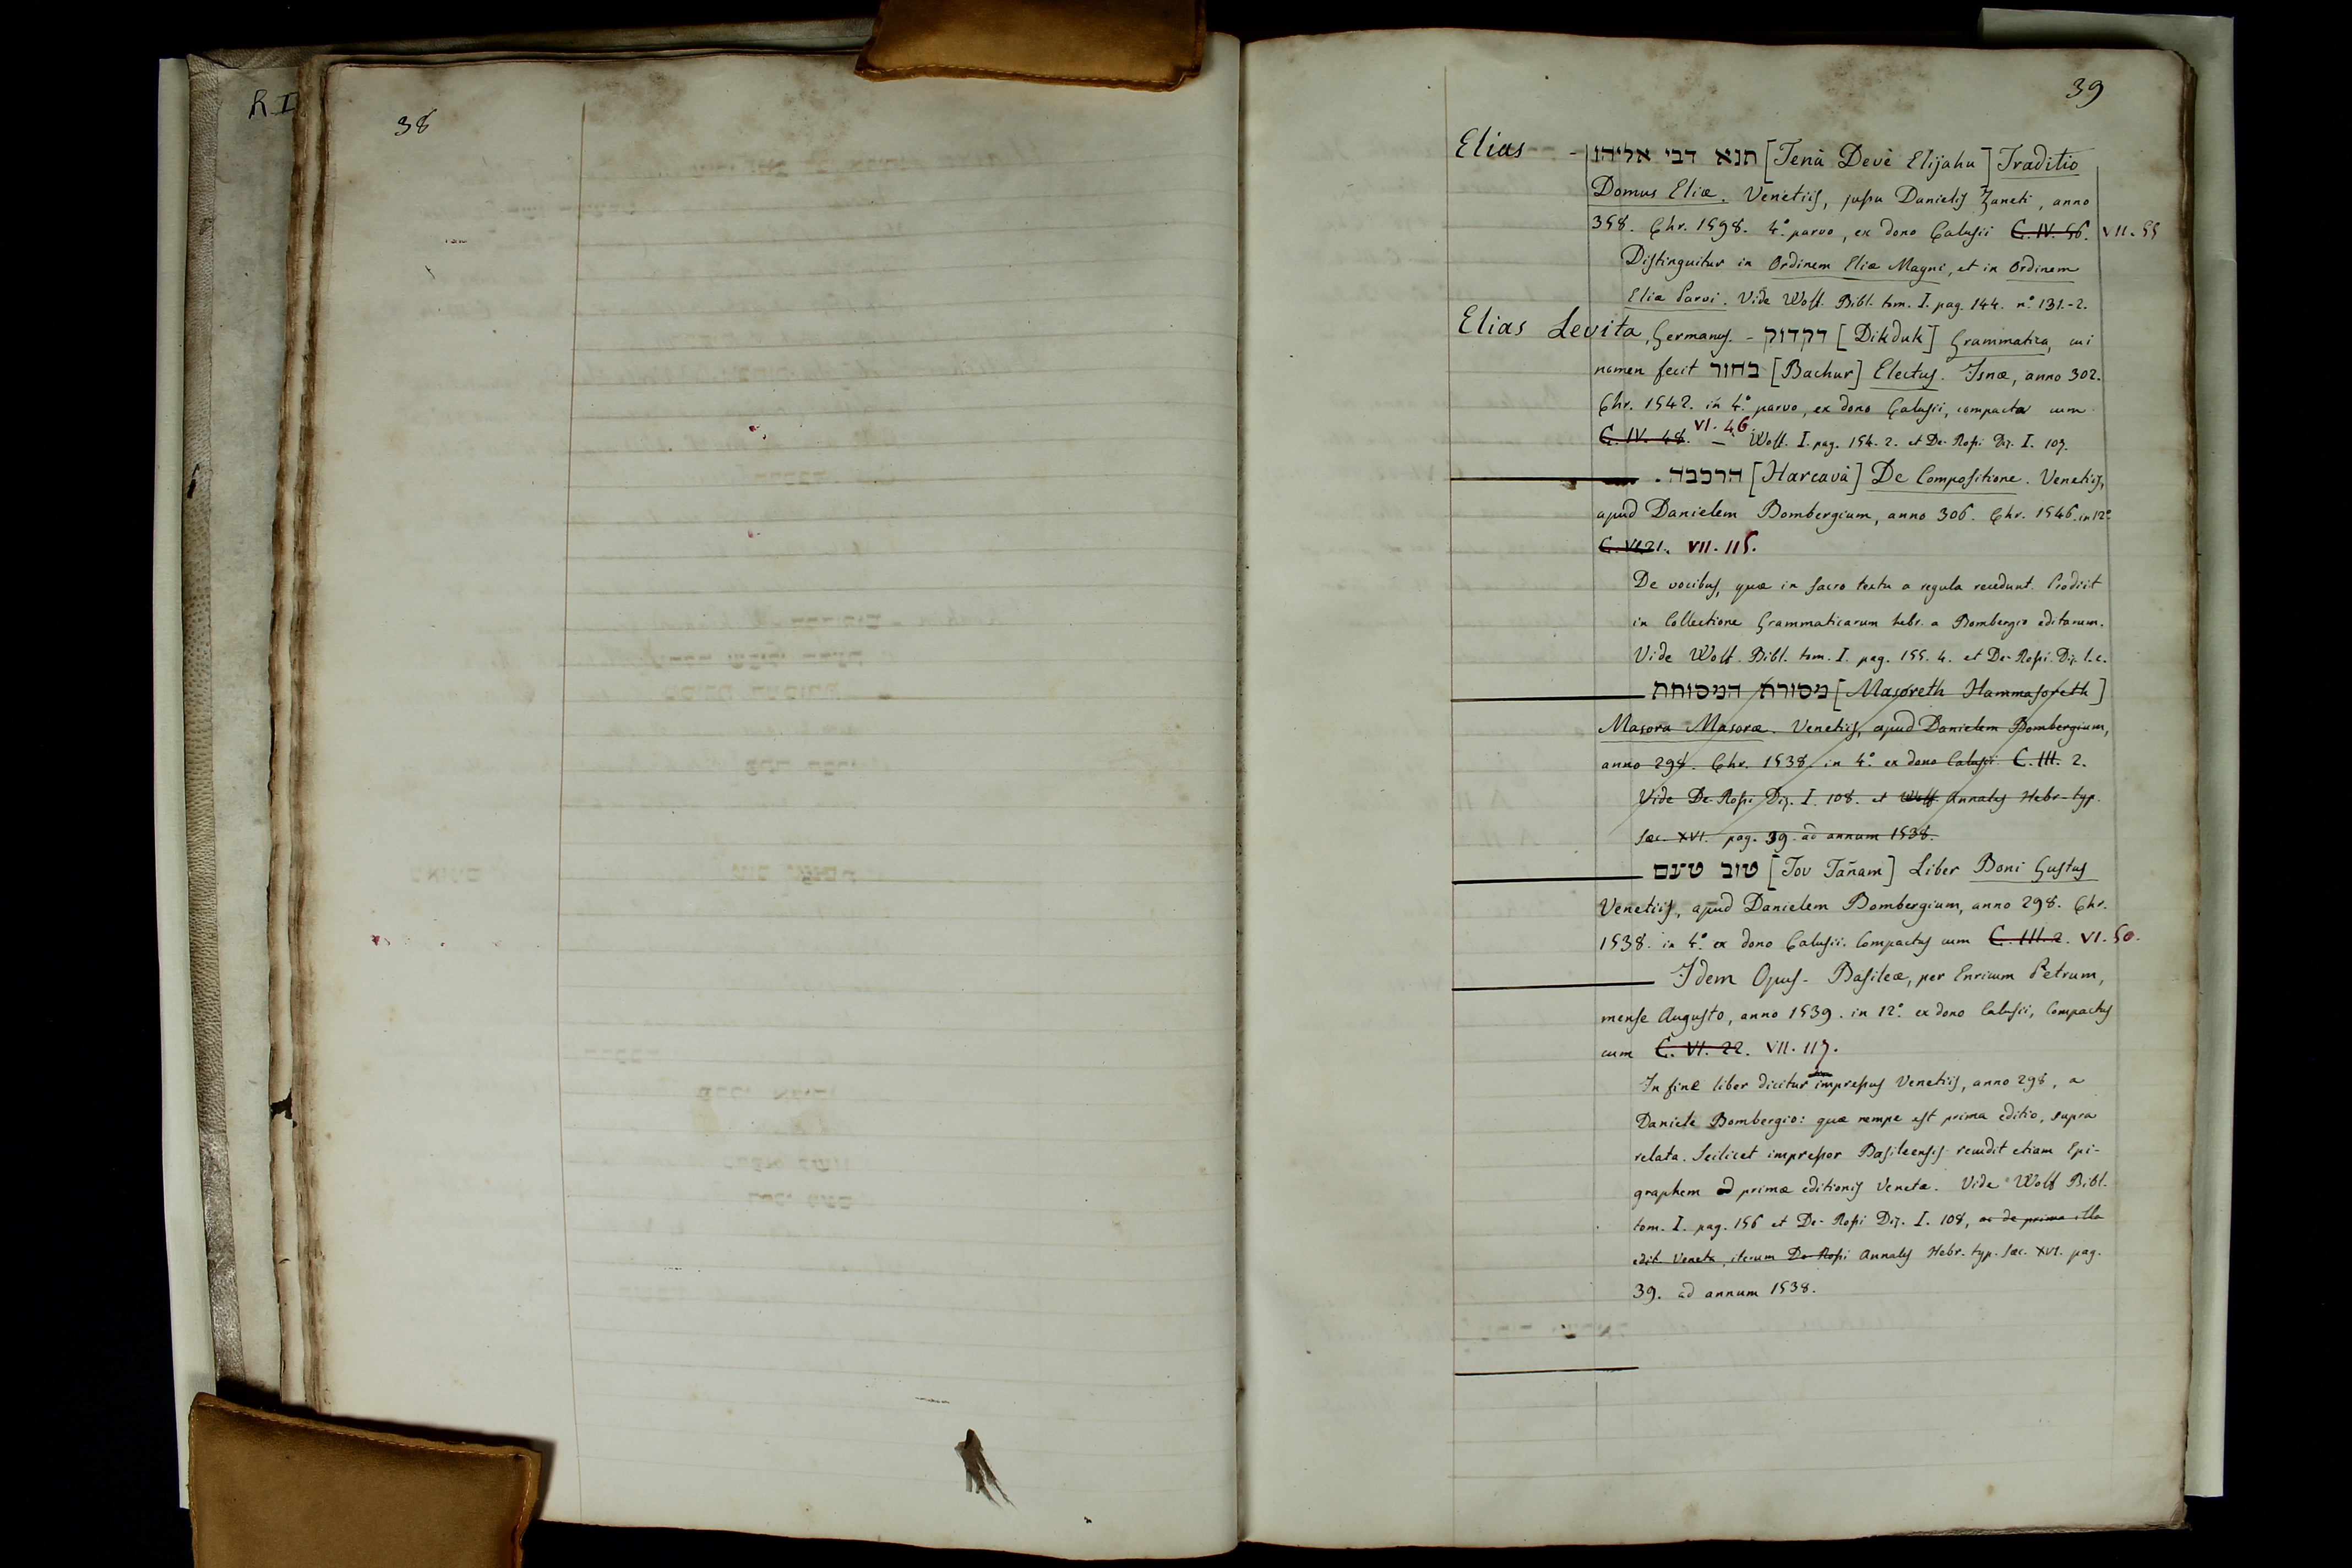 R.I
38
39
Elias - תנא דבי אליהו [Tenà Devè Elijahu] Traditio
Domus Eliæ. Venetiis, jussu Danielis Zaneti, anno
358. Chr. 1598. 4.° parvo, ex dono Calusii C. IV. 56. VII. 55
Distinguitur in Ordinem Eliæ Magni, et in Ordinem
Eliæ Parvi. Vide Wolf. Bibl. tom. I. pag. 144. n.° 131.-2.
Elias Levita, Germanus. - דקדוק [Dikduk] Grammatica, cui
nomen fecit בחור [Bachur] Electus. Isnæ, anno 302.
Chr. 1542. in 4.° parvo, ex dono Calusii, compacta cum
C. IV. 48. VI. 46. — Wolf. I. pag. 154. 2. et De-Rossi Diz. I. 107.
הרכבה [Harcavà] De Compositione. Venetiis,
apud Danielem Bombergium, anno 306. Chr. 1546. in 12.°
C. VI. 21. VII. 115.
De vocibus, quæ in sacro textu a regula recedunt. Prodiit
in Collectione Grammaticarum hebr. a Bombergio editarum.
Vide Wolf. Bibl. tom. I. pag. 155. 4. et De-Rossi Diz. l. c.
מסורת המסורת [Masoreth Hammasoreth]
Masora Masoræ. Venetiis, apud Danielem Bombergium,
anno 298. Chr. 1538. in 4.° ex dono Calusii C. III. 2.
Vide De-Rossi Diz. I. 108. et Wolf. Annales Hebr-typ.
sæc. XVI. pag. 39. ad annum 1538.
טוב טעם [Tov Tañam] Liber Boni Gustus
Venetiis, apud Danielem Bombergium, anno 298. Chr.
1538. in 4.° ex dono Calusii. Compactus cum C. III. 2. VI. 50.
Idem Opus - Basileæ, per Enricum Petrum,
mense Augusto, anno 1539. in 12.° ex dono Calusii, Compactus
cum C. VI. 22. VII. 117.
In fine liber dicitur impressus Venetiis, anno 298, a
Daniele Bombergio: quæ nempe est prima editio, supra
relata. Scilicet impressor Basileensis recudit etiam Epi-
graphem primæ editionis Venetæ. Vide Wolf Bibl.
tom. I. pag. 156 et De-Rossi Diz. I. 108, ac de prima illa
edit. Veneta, iterum De-Rossi Annales Hebr. typ. sæc. XVI. pag.
39. ad annum 1538.